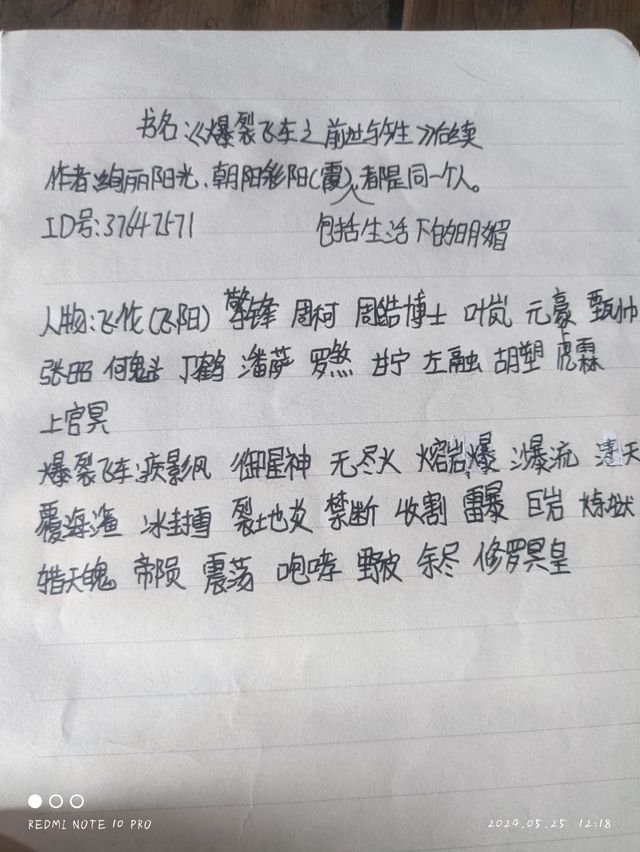 书名:《爆裂飞车之前世与今生》后续
作者:绚丽阳光、朝阳彩阳(霞)人,都是同一个人。
ID号:37647571 包括生活下的明媚
人物:飞伦(飞阳) 擎锋 周柯 周皓博士 叶岚 元豪 甄帅
张昭 何魁 丁鹤 潘萨 罗煞 甘宁 左融 胡塑 虎霖
上官冥
爆裂飞车:疾影风 御星神 无尽火 熔岩爆 沙爆流 天
覆海渔 冰封雪 裂地炎 禁断 收割 雷暴 巨岩 炼狱
天魄 帝陨 震荡 咆哮 野皮 余尽 修罗冥皇
REDMI NOTE 10 PRO 2024.05.25 12:18